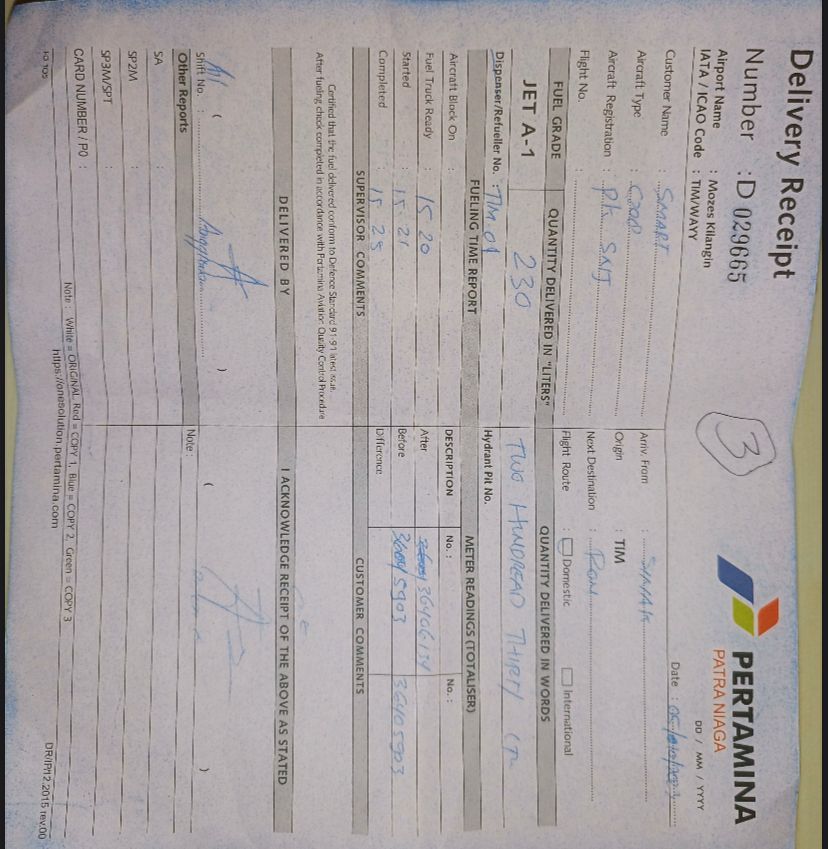 Delivery Receipt
Number : D 029665
Airport Name : Mozes Kilangin
IATA / ICAO Code : TIM/WAYY
3
PERTAMINA
PATRA NIAGA
DD / MM / YYYY
Date :
Customer Name : SMART
Aircraft Type : C208
Aircraft Registration : PK SNJ
Flight No. :
Arriv. From :
Origin : TIM
Next Destination :
Flight Route : Domestic International
FUEL GRADE QUANTITY DELIVERED IN "LITERS" QUANTITY DELIVERED IN WORDS
JET A-1 230 TWO HUNDREAD THIRTY
Dispenser/Refueller No. : TIM 01 Hydrant Pit No.
FUELING TIME REPORT METER READINGS (TOTALISER)
Aircraft Block On : DESCRIPTION No. : No. :
Fuel Truck Ready : 15 20 After 36406134
Started : 15 21 Before 5903 36405903
Completed : 15 25 Difference
SUPERVISOR COMMENTS CUSTOMER COMMENTS
Certified that the fuel delivered conform to Defence Standard 91-91 latest issue.
After fueling check completed in accordance with Pertamina Aviation Quality Control Procedure
DELIVERED BY I ACKNOWLEDGE RECEIPT OF THE ABOVE AS STATED
( ) ( )
Shift No. :
Other Reports Note :
SA :
SP2M :
SP3M/SPT :
CARD NUMBER / PO :
Note : White = ORIGINAL, Red = COPY 1, Blue = COPY 2, Green = COPY 3
https://onesolution.pertamina.com
DR/IP/12.2015 rev.00